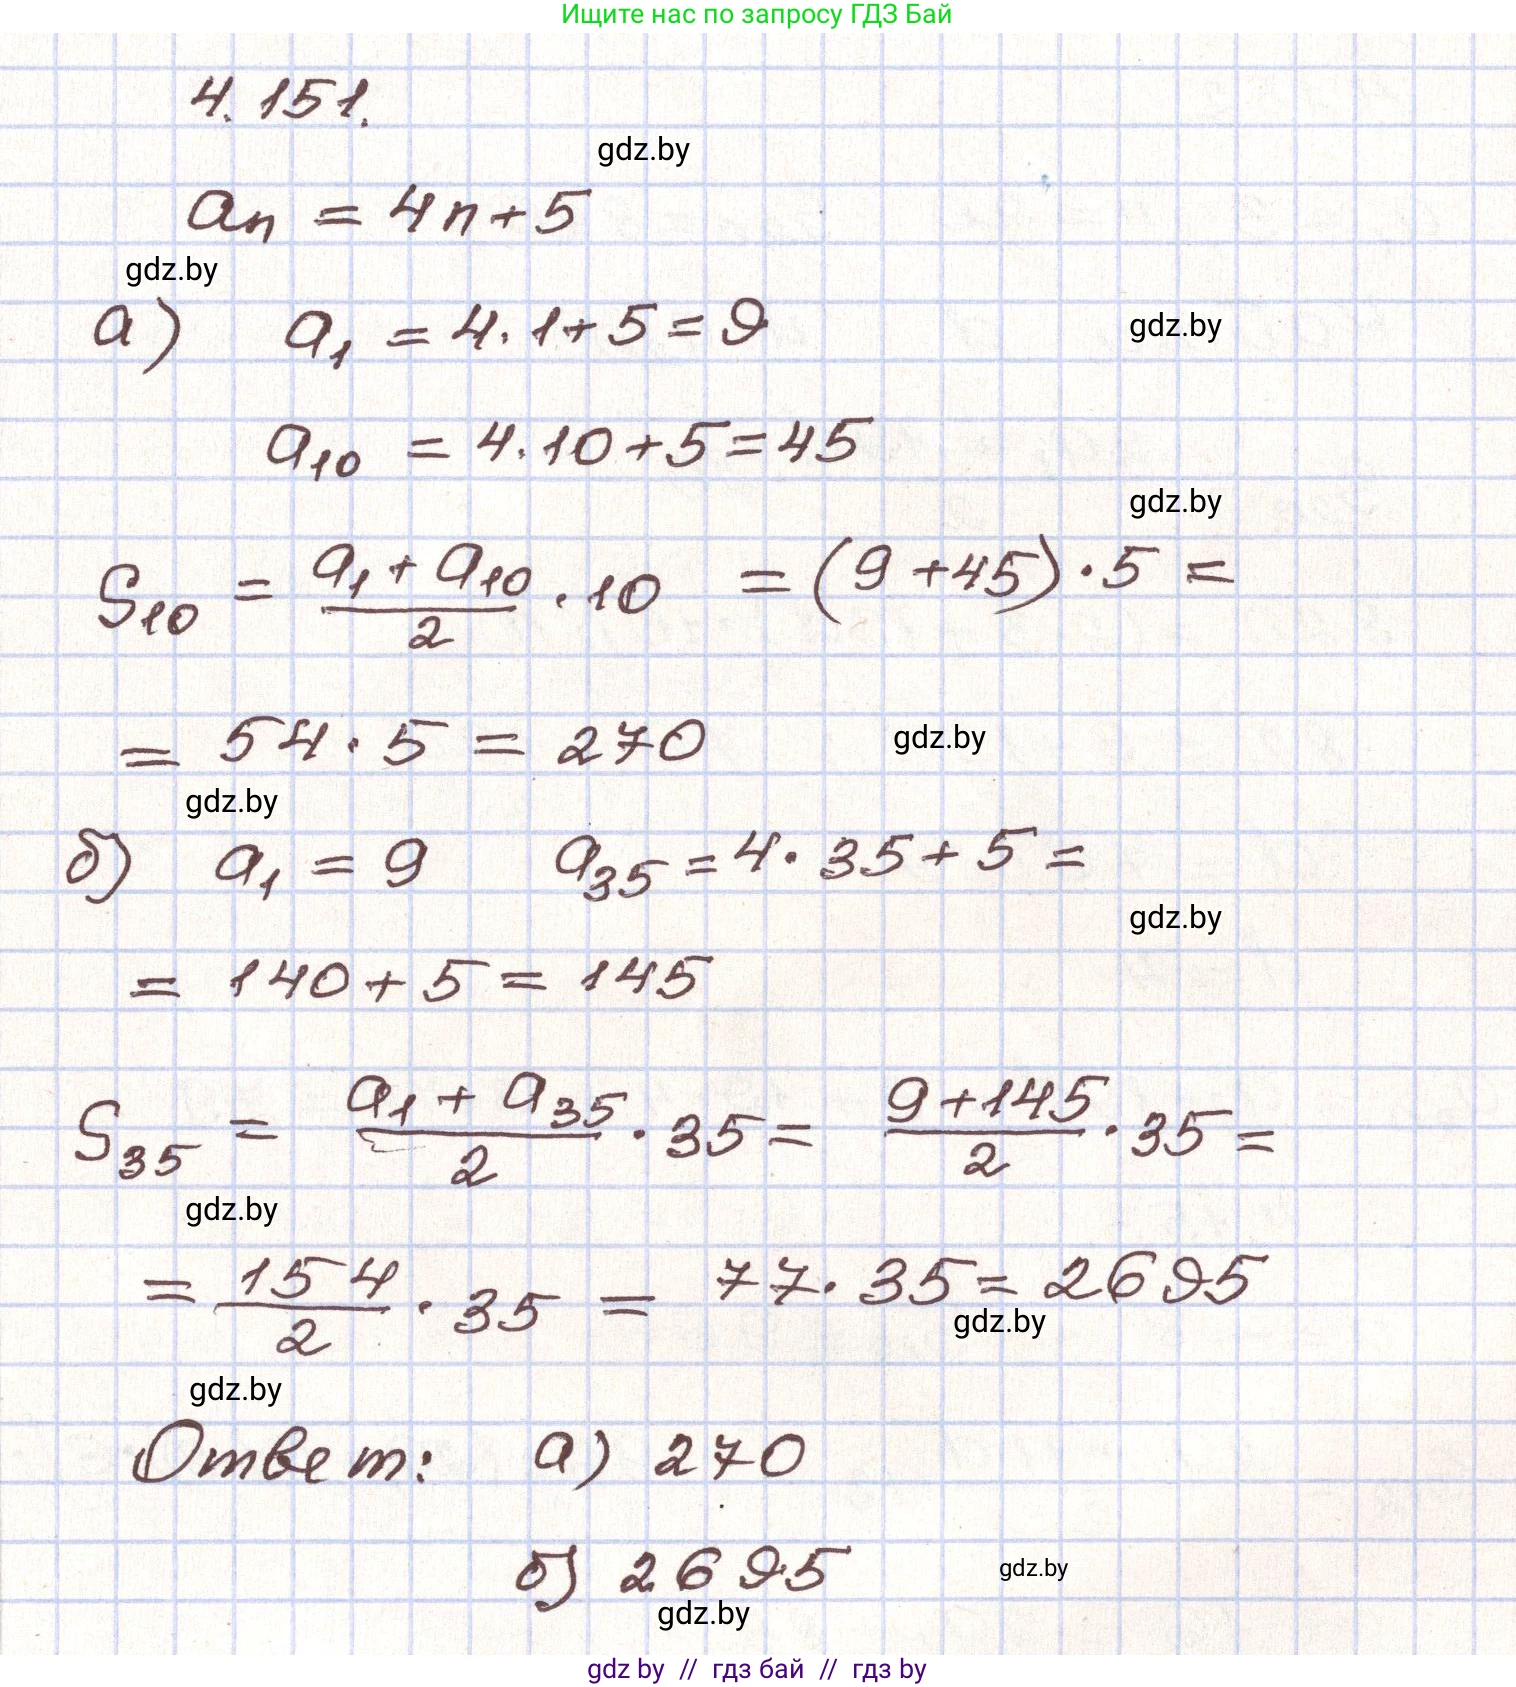 Ищите нас по запросу ГДЗ Бай
4.151.
gdz.by
aₙ = 4n + 5
gdz.by
а) a₁ = 4·1 + 5 = 9
gdz.by
a₁₀ = 4·10 + 5 = 45
gdz.by
S₁₀ = (a₁ + a₁₀)/2 · 10 = (9 + 45)·5 =
= 54·5 = 270
gdz.by
gdz.by
б) a₁ = 9 a₃₅ = 4·35 + 5 =
gdz.by
= 140 + 5 = 145
S₃₅ = (a₁ + a₃₅)/2 · 35 = (9 + 145)/2 · 35 =
gdz.by
= 154/2 · 35 = 77·35 = 2695
gdz.by
gdz.by
Ответ: а) 270
б) 2695
gdz.by
gdz.by
gdz by // гдз бай // гдз by